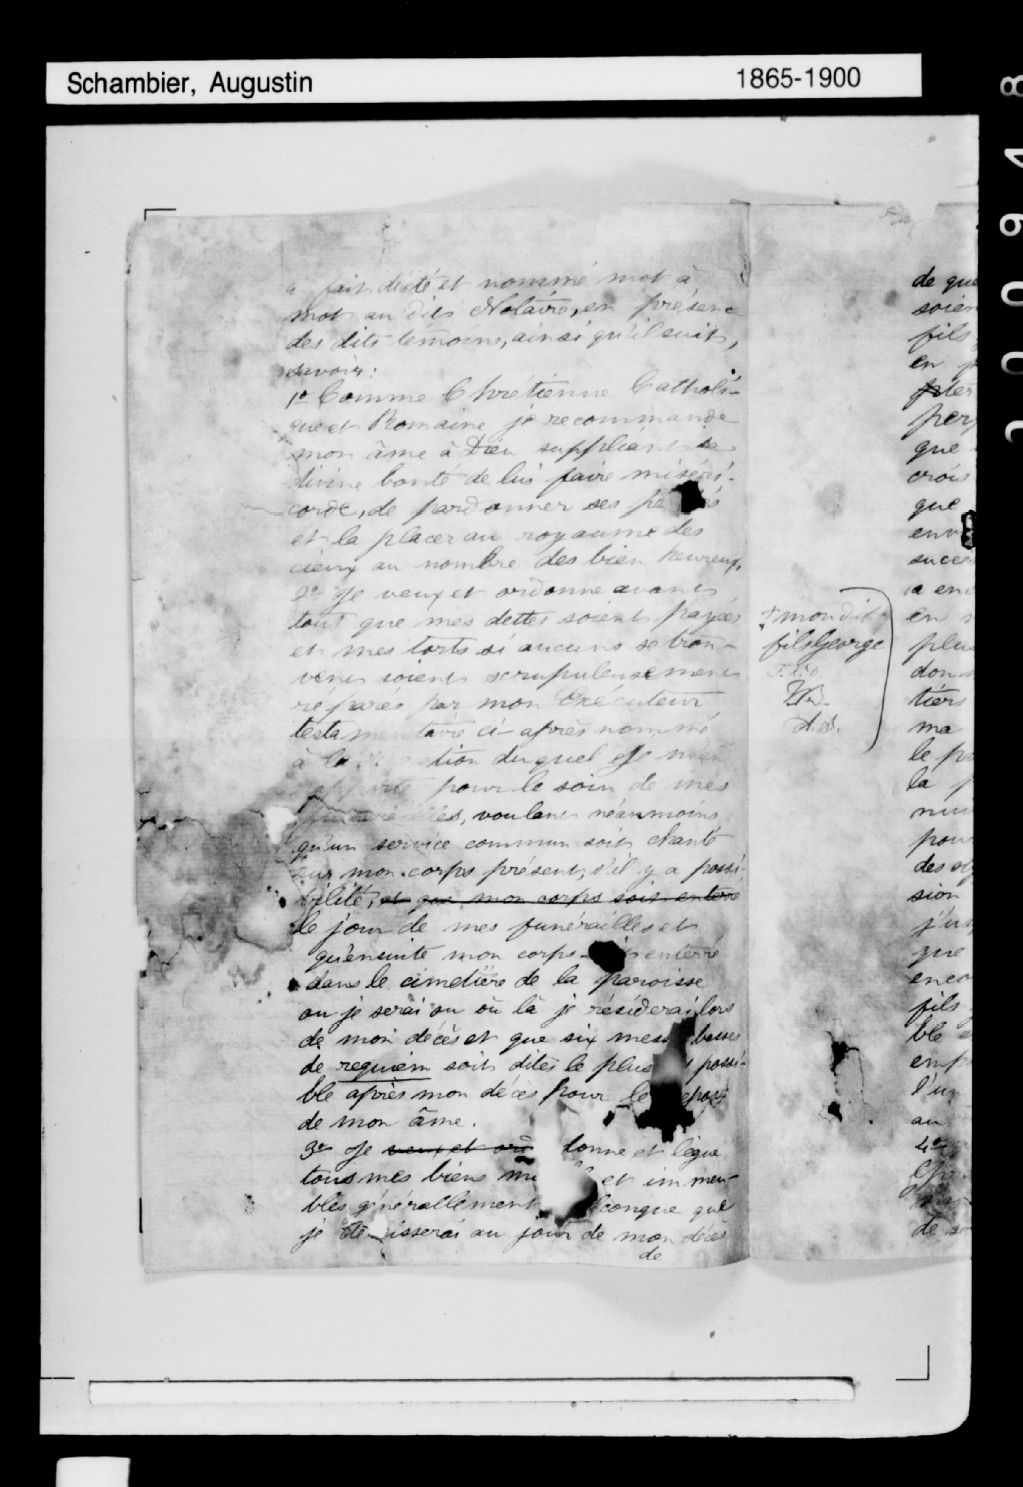 Schambier, Augustin 1865-1900
a fait dicté et nommé mot à
mot au dit Notaire, en présence
des dits témoins, ainsi qu'il suit,
savoir:
1o Comme Chrétienne Catholi-
que et Romaine je recommande
mon âme à Dieu suppliant sa
divine bonté de lui faire miséri-
corde, de pardonner ses pé s
et la placer au royaume des
cieux au nombre des bien heureux.
2o Je veux et ordonne avant
tout que mes dettes soient payées
et mes torts si aucuns se trou-
vent soient scrupuleusement
réparés par mon Exécuteur
testamentaire ci-après nommé
à la tion duquel Je m'en
rapporte pour le soin de mes
funérailles, voulant néanmoins
qu'un service commun soit chanté
sur mon corps présent, s'il y a possi-
bilité, et que mon corps soit enterré
le jour de mes funérailles et
qu'ensuite mon corps enterré
dans le cimetière de la paroisse
ou je serai ou où là je résiderai lors
de mon décès et que six mes basses
de requiem soit dites le plus possi-
ble après mon décès pour le epos
de mon âme.
3o Je veux et or donne et lègue
tous mes biens me et immeu-
bles générallement lconque que
je dé isserai au jour de mon décès
de
+ mon dit
fils George
A.S.
de que
soien
fils
en
per
que
crois
que
env
succe
a en
en
plu
don
tiers
ma
le p
la
pour
des
sion
que
enco
fils
ble
emp
l'u
au
4o
de